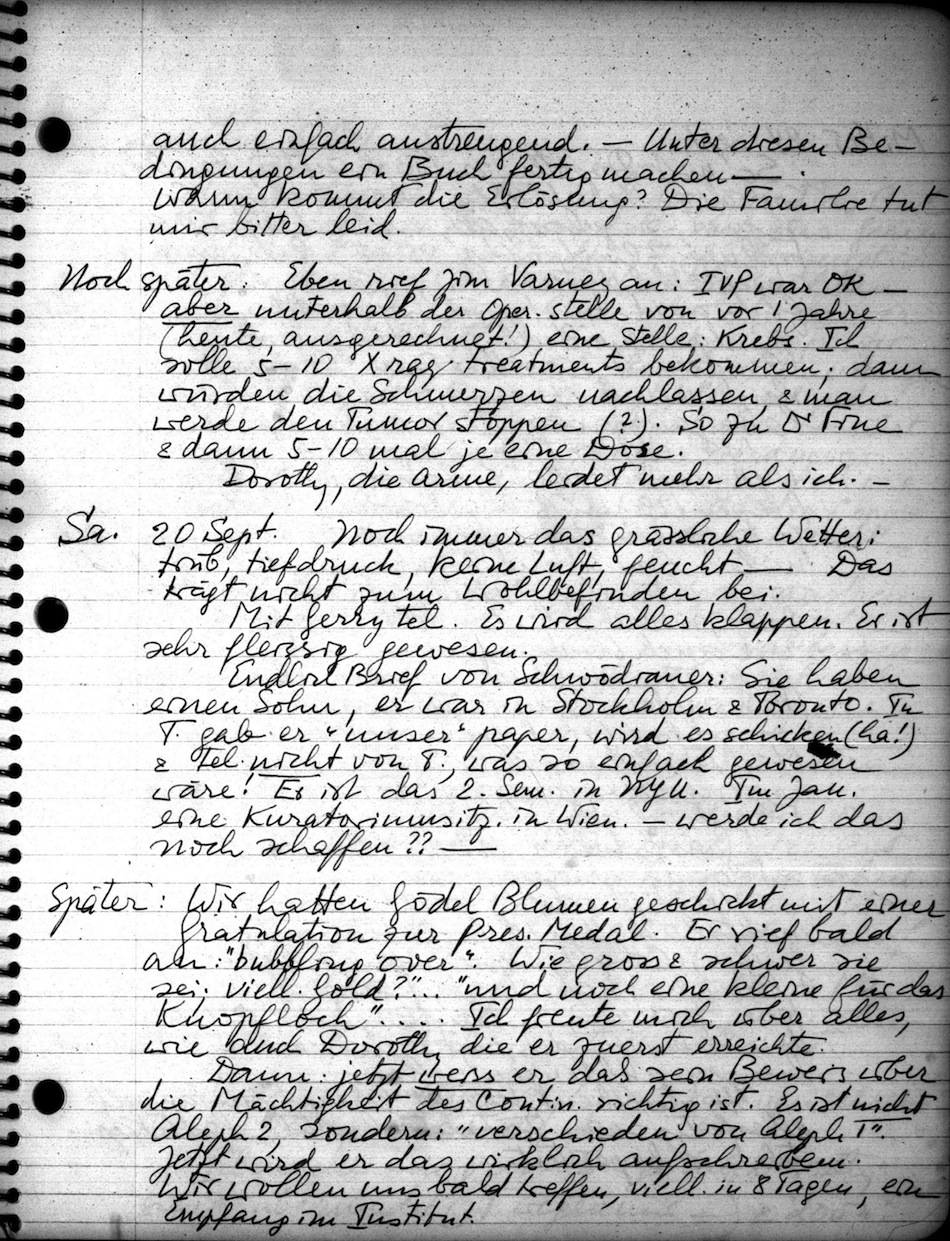 auch einfach anstrengend. — Unter diesen Be-
dingungen ein Buch fertig machen — .
wann kommt die Erlösung? Die Familie tut
mir bitter leid.
Noch später: Eben rief Jim Varney an: IVP war OK —
aber unterhalb der Oper. stelle von vor 1 Jahre
(heute, ausgerechnet!) eine Stelle: Krebs. Ich
solle 5-10 X ray treatments bekommen; dann
würden die Schmerzen nachlassen & man
werde den Tumor stoppen (?). So zu Dr Fine
& dann 5-10 mal je eine Dose.
Dorothy, die arme, leidet mehr als ich. —
Sa. 20 Sept. Noch immer das grässliche Wetter:
trüb, tiefdruck, keine Luft, feucht — Das
trägt nicht zum Wohlbefinden bei.
Mit Gerry tel. Es wird alles klappen. Er ist
sehr fleissig gewesen.
Endlich Brief von Schwödiauer: Sie haben
einen Sohn, er war in Stockholm & Toronto. In
T. gab er "unser" paper, wird es schicken (ha!)
& tel. nicht von T., was so einfach gewesen
wäre! Er ist das 2. Sem. in NYU. Im Jan.
eine Kuratoriumsitz. in Wien. — werde ich das
noch schaffen?? —
Später: Wir hatten Gödel Blumen geschickt mit einer
Gratulation zur Pres. Medal. Er rief bald
an: "bubbling over". Wie gross & schwer sie
sei; viell. Gold?"... "und noch eine kleine für das
Knopfloch".... Ich freute mich über alles,
wie auch Dorothy, die er zuerst erreichte.
Dann: jetzt weiss er das sein Beweis über
die Mächtigkeit des Contin. richtig ist. Es ist nicht
Aleph 2, sondern: "verschieden von Aleph I".
Jetzt wird er das wirklich aufschreiben.
Wir wollen uns bald treffen, viell. in 8 Tagen, ein
Empfang im Institut.